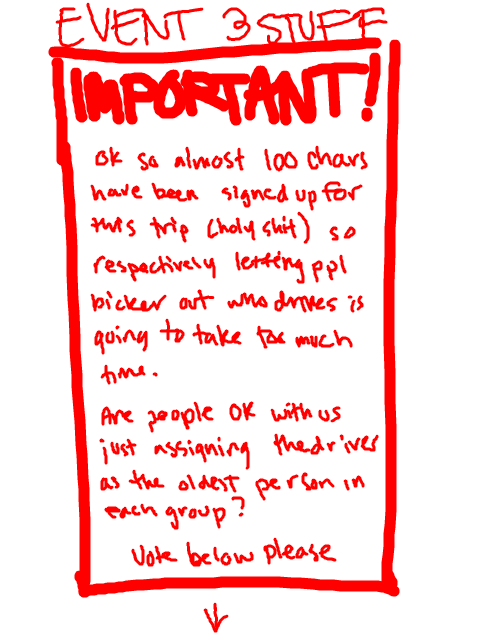 EVENT 3 STUFF
IMPORTANT!
ok so almost 100 chars
have been signed up for
this trip (holy shit) so
respectively letting ppl
bicker out who drives is
going to take too much
time.
Are people OK with us
just assigning the driver
as the oldest person in
each group?
Vote below please